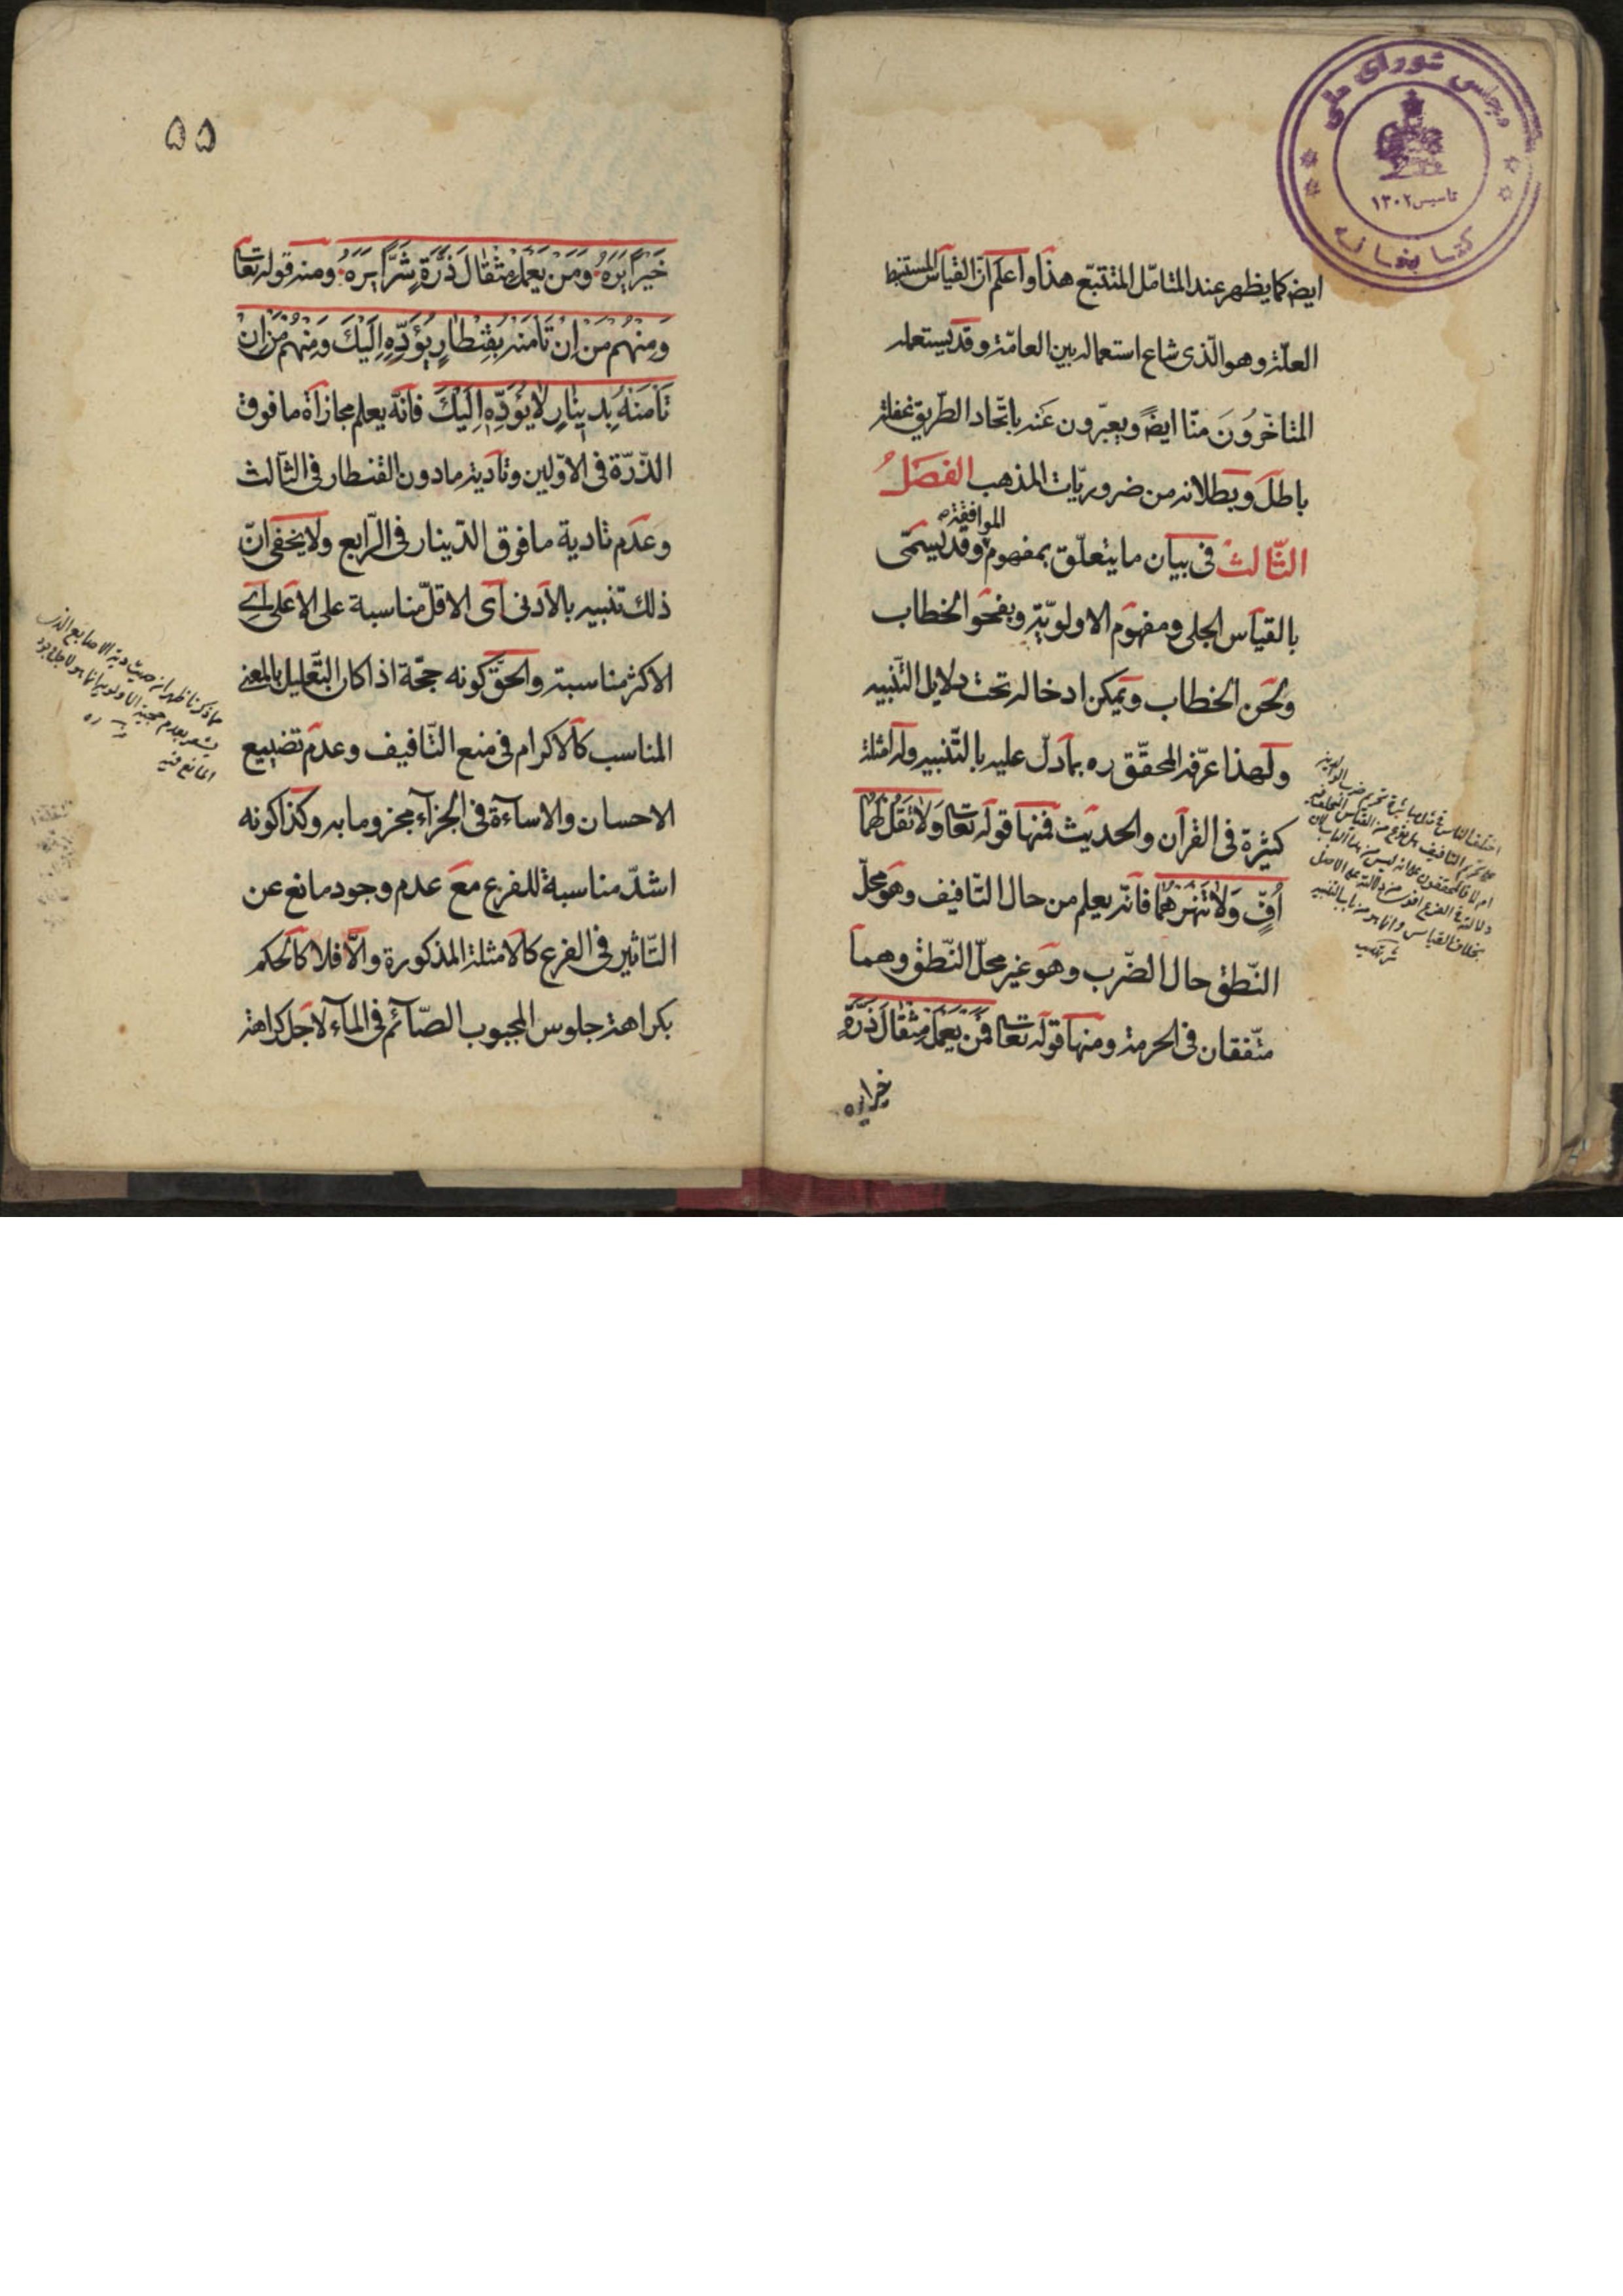 مجلس شورای ملی
تاسیس ۱۳۰۲
کتابخانه
ایض کما یظهر عند المتامّل المتتبّع هذا واعلم ان القیاس المستنبط
العلّة وهو الّذی شاع استعماله بین العامّة وقد یستعمله
المتاخّرون منّا ایضً ویعبّرون عنه باتّحاد الطّریق غفلة
باطل وبطلانه من ضروریّات المذهب الفصل
الثّالث فی بیان ما یتعلّق بمفهوم الموافقة وقد یسمّی
بالقیاس الجلی ومفهوم الاولویّة وبفحو الخطاب
ولحن الخطاب ویمکن ادخاله تحت دلایل التّنبیه
ولهذا عرّفه المحقّق ره بما دلّ علیه بالتّنبیه وله امثلة
کثیرة فی القرآن والحدیث فمنها قوله تعا وَلا تَقُلْ لَهُما
أُفٍّ وَلا تَنْهَرْهُما فانّه یعلم من حال التّافیف وهو محلّ
النّطق حال الضّرب وهو غیر محلّ النّطق وهما
متّفقان فی الحرمة ومنها قوله تعا فَمَن یَعْمَلْ مِثْقالَ ذَرَّةٍ
خیرا یره
اختلف الناس فی
علی تحریم التافیف هل هو نوع من القیاس
ام لا فالمحققون علی انه لیس من هذا الباب لان
دلالته فی الفرع اقوی من دلالته علی الاصل
بخلاف القیاس وانما هو من باب التنبیه
۵۵
خَیْرًا یَرَهُ وَمَن یَعْمَلْ مِثْقالَ ذَرَّةٍ شَرًّا یَرَهُ ومنه قوله تعا
وَمِنْهُم مَن اِنْ تَأمَنْهُ بِقِنْطارٍ یُؤَدِّهِ اِلَیْكَ وَمِنْهُمْ مَن اِنْ
تَأمَنْهُ بِدینارٍ لا یُؤَدِّهِ اِلَیْكَ فانّه یعلم مجازاة ما فوق
الذّرّة فی الاوّلین وتأدیة ما دون القنطار فی الثّالث
وعدم تادیة ما فوق الدّینار فی الرّابع ولا یخفی انّ
ذلك تنبیه بالادنی ای الاقلّ مناسبة علی الاعلی ای
الاکثر مناسبة والحقّ کونه حجّة اذا کان التّعلیل بالمعنی
المناسب کالاکرام فی منع التّافیف وعدم تضییع
الاحسان والاساءة فی الجزآء مجزوما به وکذا کونه
اشدّ مناسبة للفرع مع عدم وجود مانع عن
التّاثیر فی الفرع کالامثلة المذکورة والّا فلا کالحکم
بکراهة جلوس المجبوب الصّآئم فی المآء لاجل کراهة
مما ذکرنا ظهر ان حدیث دیة الاصابع الذی
یشعر بعدم حجیة الاولویة انما هو لاجل وجود
المانع فیه